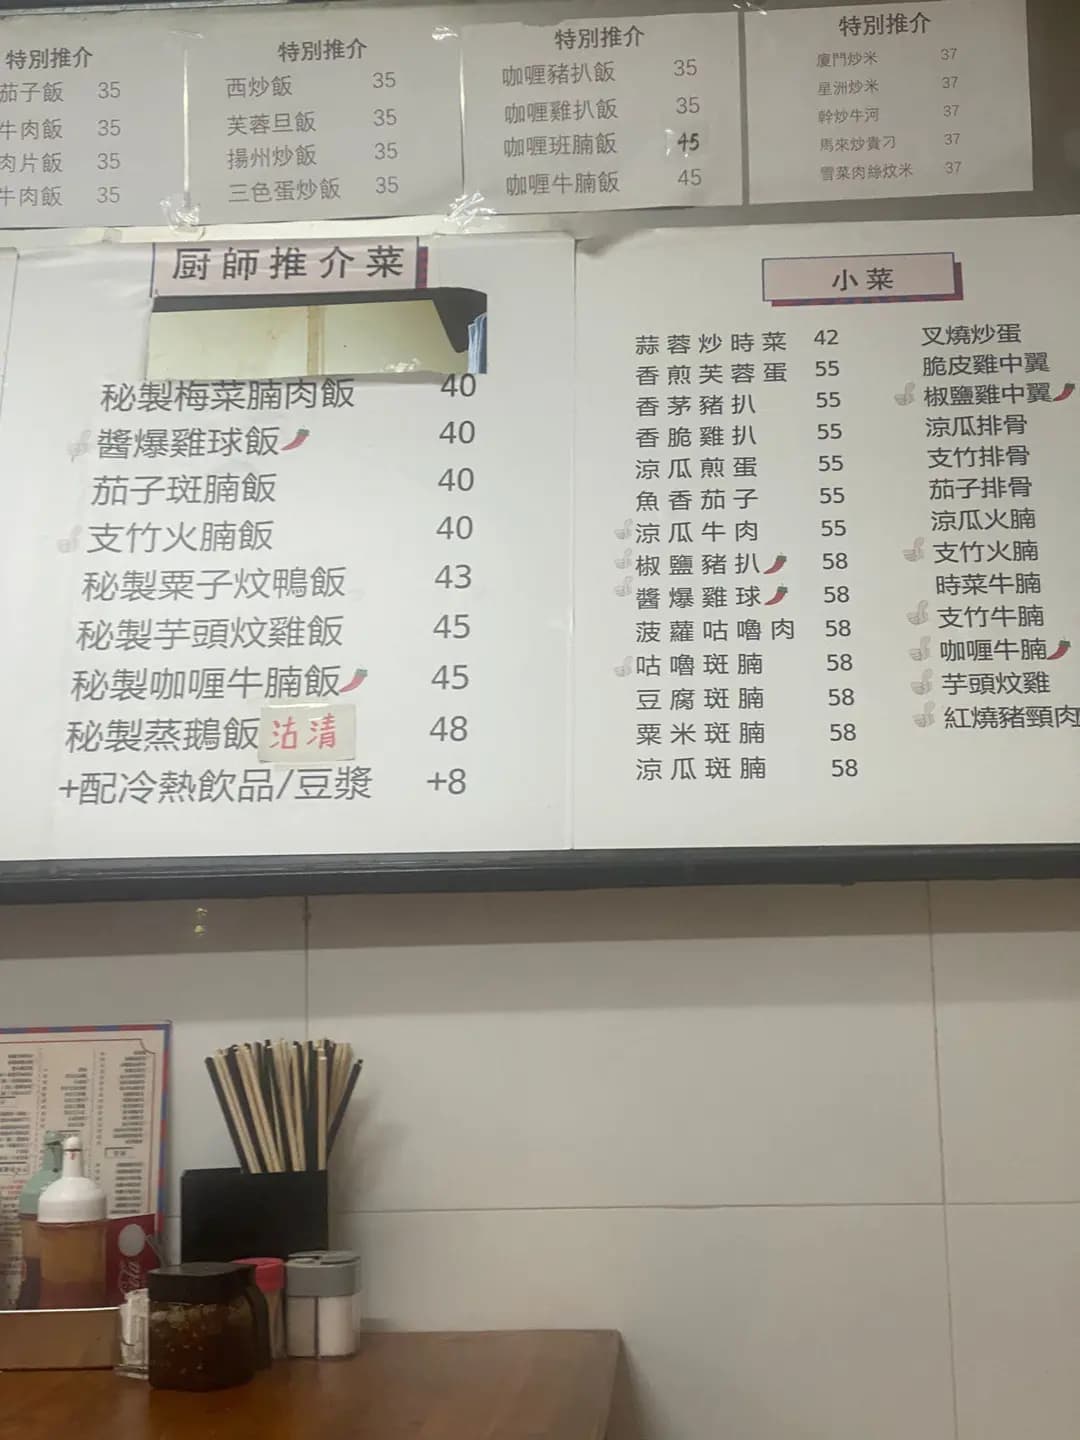 特別推介
茄子飯 35
牛肉飯 35
肉片飯 35
牛肉飯 35
特別推介
西炒飯 35
芙蓉旦飯 35
揚州炒飯 35
三色蛋炒飯 35
特別推介
咖喱豬扒飯 35
咖喱雞扒飯 35
咖喱班腩飯 45
咖喱牛腩飯 45
特別推介
廈門炒米 37
星洲炒米 37
幹炒牛河 37
馬來炒貴刁 37
雪菜肉絲炆米 37
厨師推介菜
秘製梅菜腩肉飯 40
醬爆雞球飯 40
茄子斑腩飯 40
支竹火腩飯 40
秘製粟子炆鴨飯 43
秘製芋頭炆雞飯 45
秘製咖喱牛腩飯 45
秘製蒸鵝飯 沽清 48
+配冷熱飲品/豆漿 +8
小菜
蒜蓉炒時菜 42
香煎芙蓉蛋 55
香茅豬扒 55
香脆雞扒 55
涼瓜煎蛋 55
魚香茄子 55
涼瓜牛肉 55
椒鹽豬扒 58
醬爆雞球 58
菠蘿咕嚕肉 58
咕嚕斑腩 58
豆腐斑腩 58
粟米斑腩 58
涼瓜斑腩 58
叉燒炒蛋
脆皮雞中翼
椒鹽雞中翼
涼瓜排骨
支竹排骨
茄子排骨
涼瓜火腩
支竹火腩
時菜牛腩
支竹牛腩
咖喱牛腩
芋頭炆雞
紅燒豬頸肉